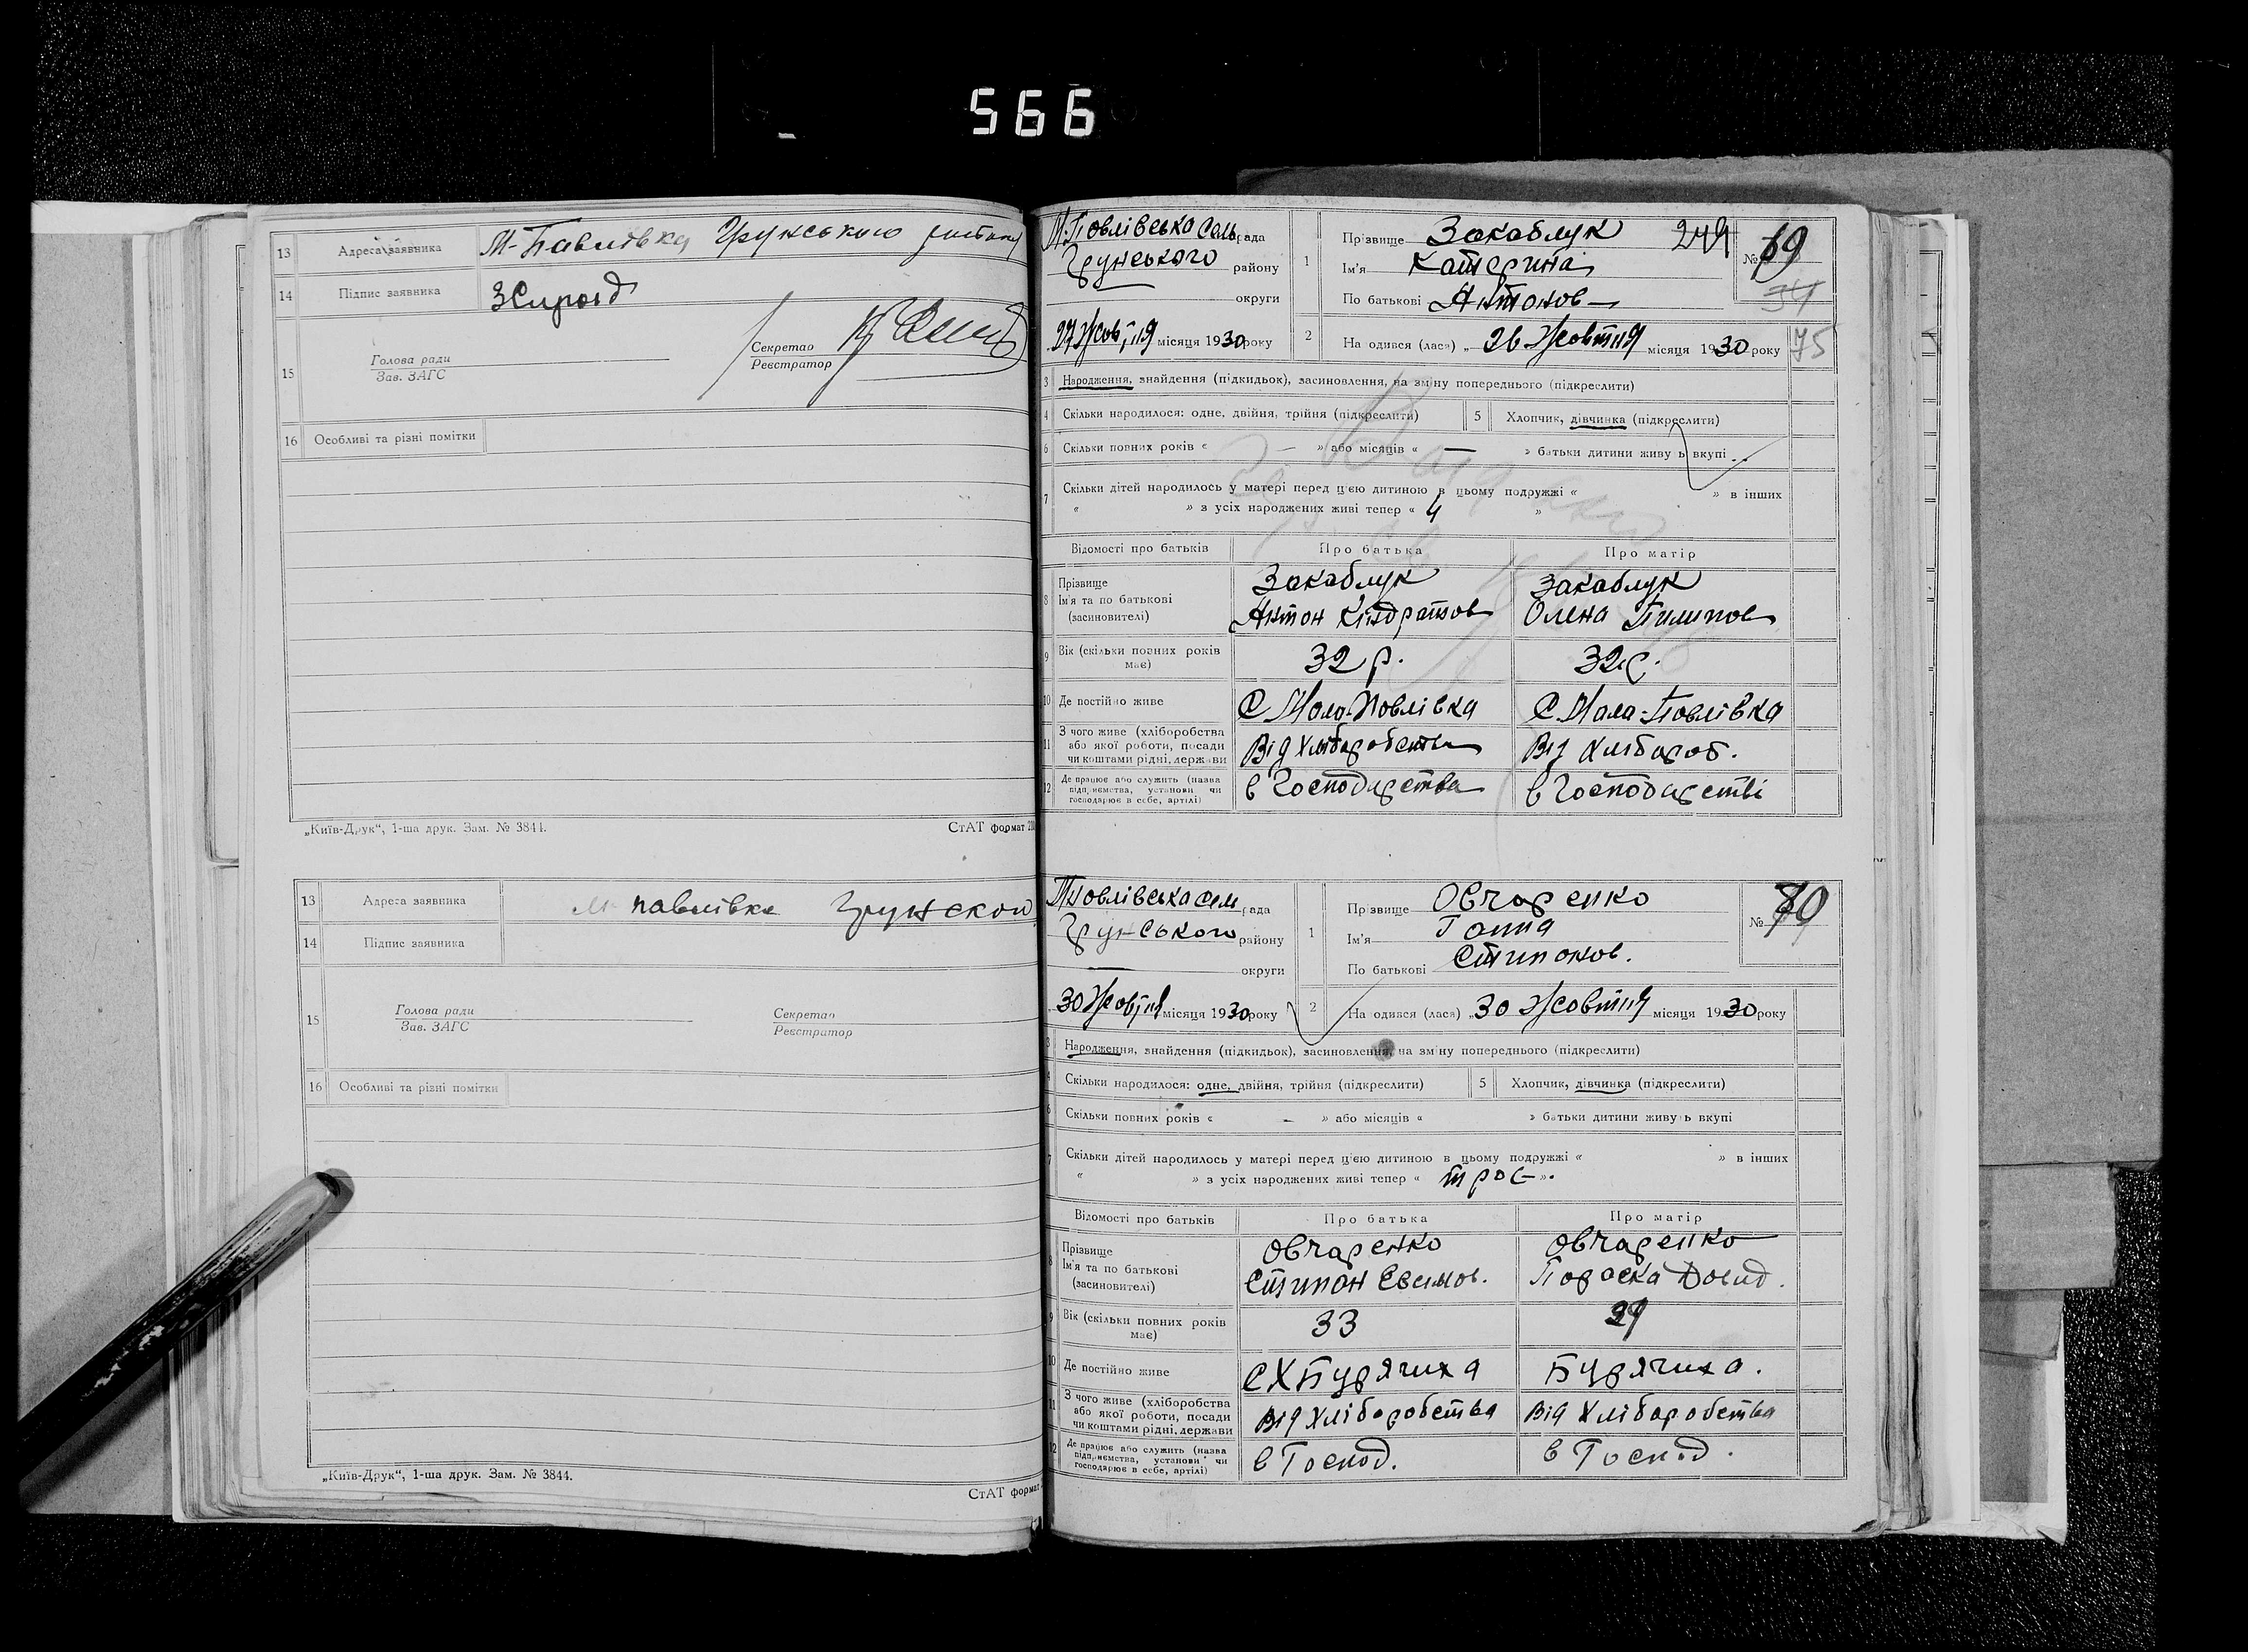 566
13 Адреса заявника М-Павлівка Грунського
14 Підпис заявника
15 Голова ради
Зав. ЗАГС
Секретар
Реєстратор
16 Особливі та різні помітки
„Київ-Друк“, 1-ша друк. Зам. № 3844.
СтАТ формат
13 Адреса заявника павлівка
14 Підпис заявника
15 Голова ради
Зав. ЗАГС
Секретар
Реєстратор
16 Особливі та різні помітки
„Київ-Друк“, 1-ша друк. Зам. № 3844.
СтАТ формат
М.Повлівська сель рада
Грунського району
округи
27 Жовтня місяця 1930 року
1 Прізвище Закаблук 249
Ім'я Катерина
По батькові Антонов
№ 69
34
75
2 На одився (лася) „ 26 Жовтня місяця 1930 року
3 Народження, знайдення (підкидьок), засиновлення, на зміну попереднього (підкреслити)
4 Скільки народилося: одне, двійня, трійня (підкреслити) 5 Хлопчик, дівчинка (підкреслити)
6 Скільки повних років « — » або місяців « — » батьки дитини живуть вкупі
7 Скільки дітей народилось у матері перед цією дитиною в цьому подружжі « » в інших
« » з усіх народжених живі тепер « 4 »
Відомості про батьків Про батька Про матір
8 Прізвище Закаблук Закаблук
Ім'я та по батькові Антон Кіндратов Олена Пилипов
(засиновителі)
9 Вік (скільки повних років має) 32 р. 32 р.
10 Де постійно живе С Мала-Повлівка С Мала-Повлівка
11 З чого живе (хліборобства Від Хліборобства Від Хлібороб.
або якої роботи, посади
чи коштами рідні, держави
12 Де працює або служить (назва в Господарства в Господарстві
підприємства, установи чи
господарює в себе, артілі)
рада
Грунського району
округи
30 Жовтня місяця 1930 року
1 Прізвище Овчаренко
Ім'я Ганна
По батькові Стипонов.
№ 70
2 На одився (лася) „ 30 Жовтня місяця 1930 року
3 Народження, знайдення (підкидьок), засиновлення, на зміну попереднього (підкреслити)
4 Скільки народилося: одне, двійня, трійня (підкреслити) 5 Хлопчик, дівчинка (підкреслити)
6 Скільки повних років « – » або місяців « » батьки дитини живуть вкупі
7 Скільки дітей народилось у матері перед цією дитиною в цьому подружжі « » в інших
« » з усіх народжених живі тепер « троє »
Відомості про батьків Про батька Про матір
8 Прізвище Овчаренко Овчаренко
Ім'я та по батькові Стипон Евсимов. Параска Довид.
(засиновителі)
9 Вік (скільки повних років має) 33 29
10 Де постійно живе С Х Бурячиха Бурячиха.
11 З чого живе (хліборобства Від Хліборобства Від Хліборобства
або якої роботи, посади
чи коштами рідні, держави
12 Де працює або служить (назва в Господ. в Господ.
підприємства, установи чи
господарює в себе, артілі)